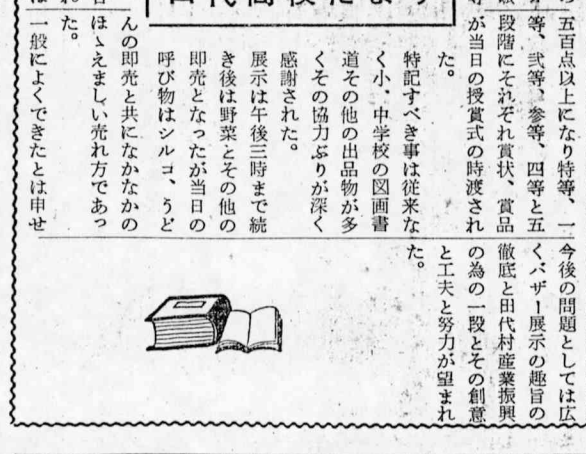 五百点以上になり特等、一
等、弐等、参等、四等と五
段階にそれぞれ賞状、賞品
が当日の授賞式の時渡され
た。
特記すべき事は従来な
く小、中学校の図画書
道その他の出品物が多
くその協力ぶりが深く
感謝された。
展示は午後三時まで続
き後は野菜とその他の
即売となったが当日の
呼び物はシルコ、うど
んの即売と共になかなかの
ほゝえましい売れ方であっ
た。
一般によくできたとは申せ
今後の問題としては広
くバザー展示の趣旨の
徹底と田代村産業振興
の為の一段とその創意
と工夫と努力が望まれ
た。